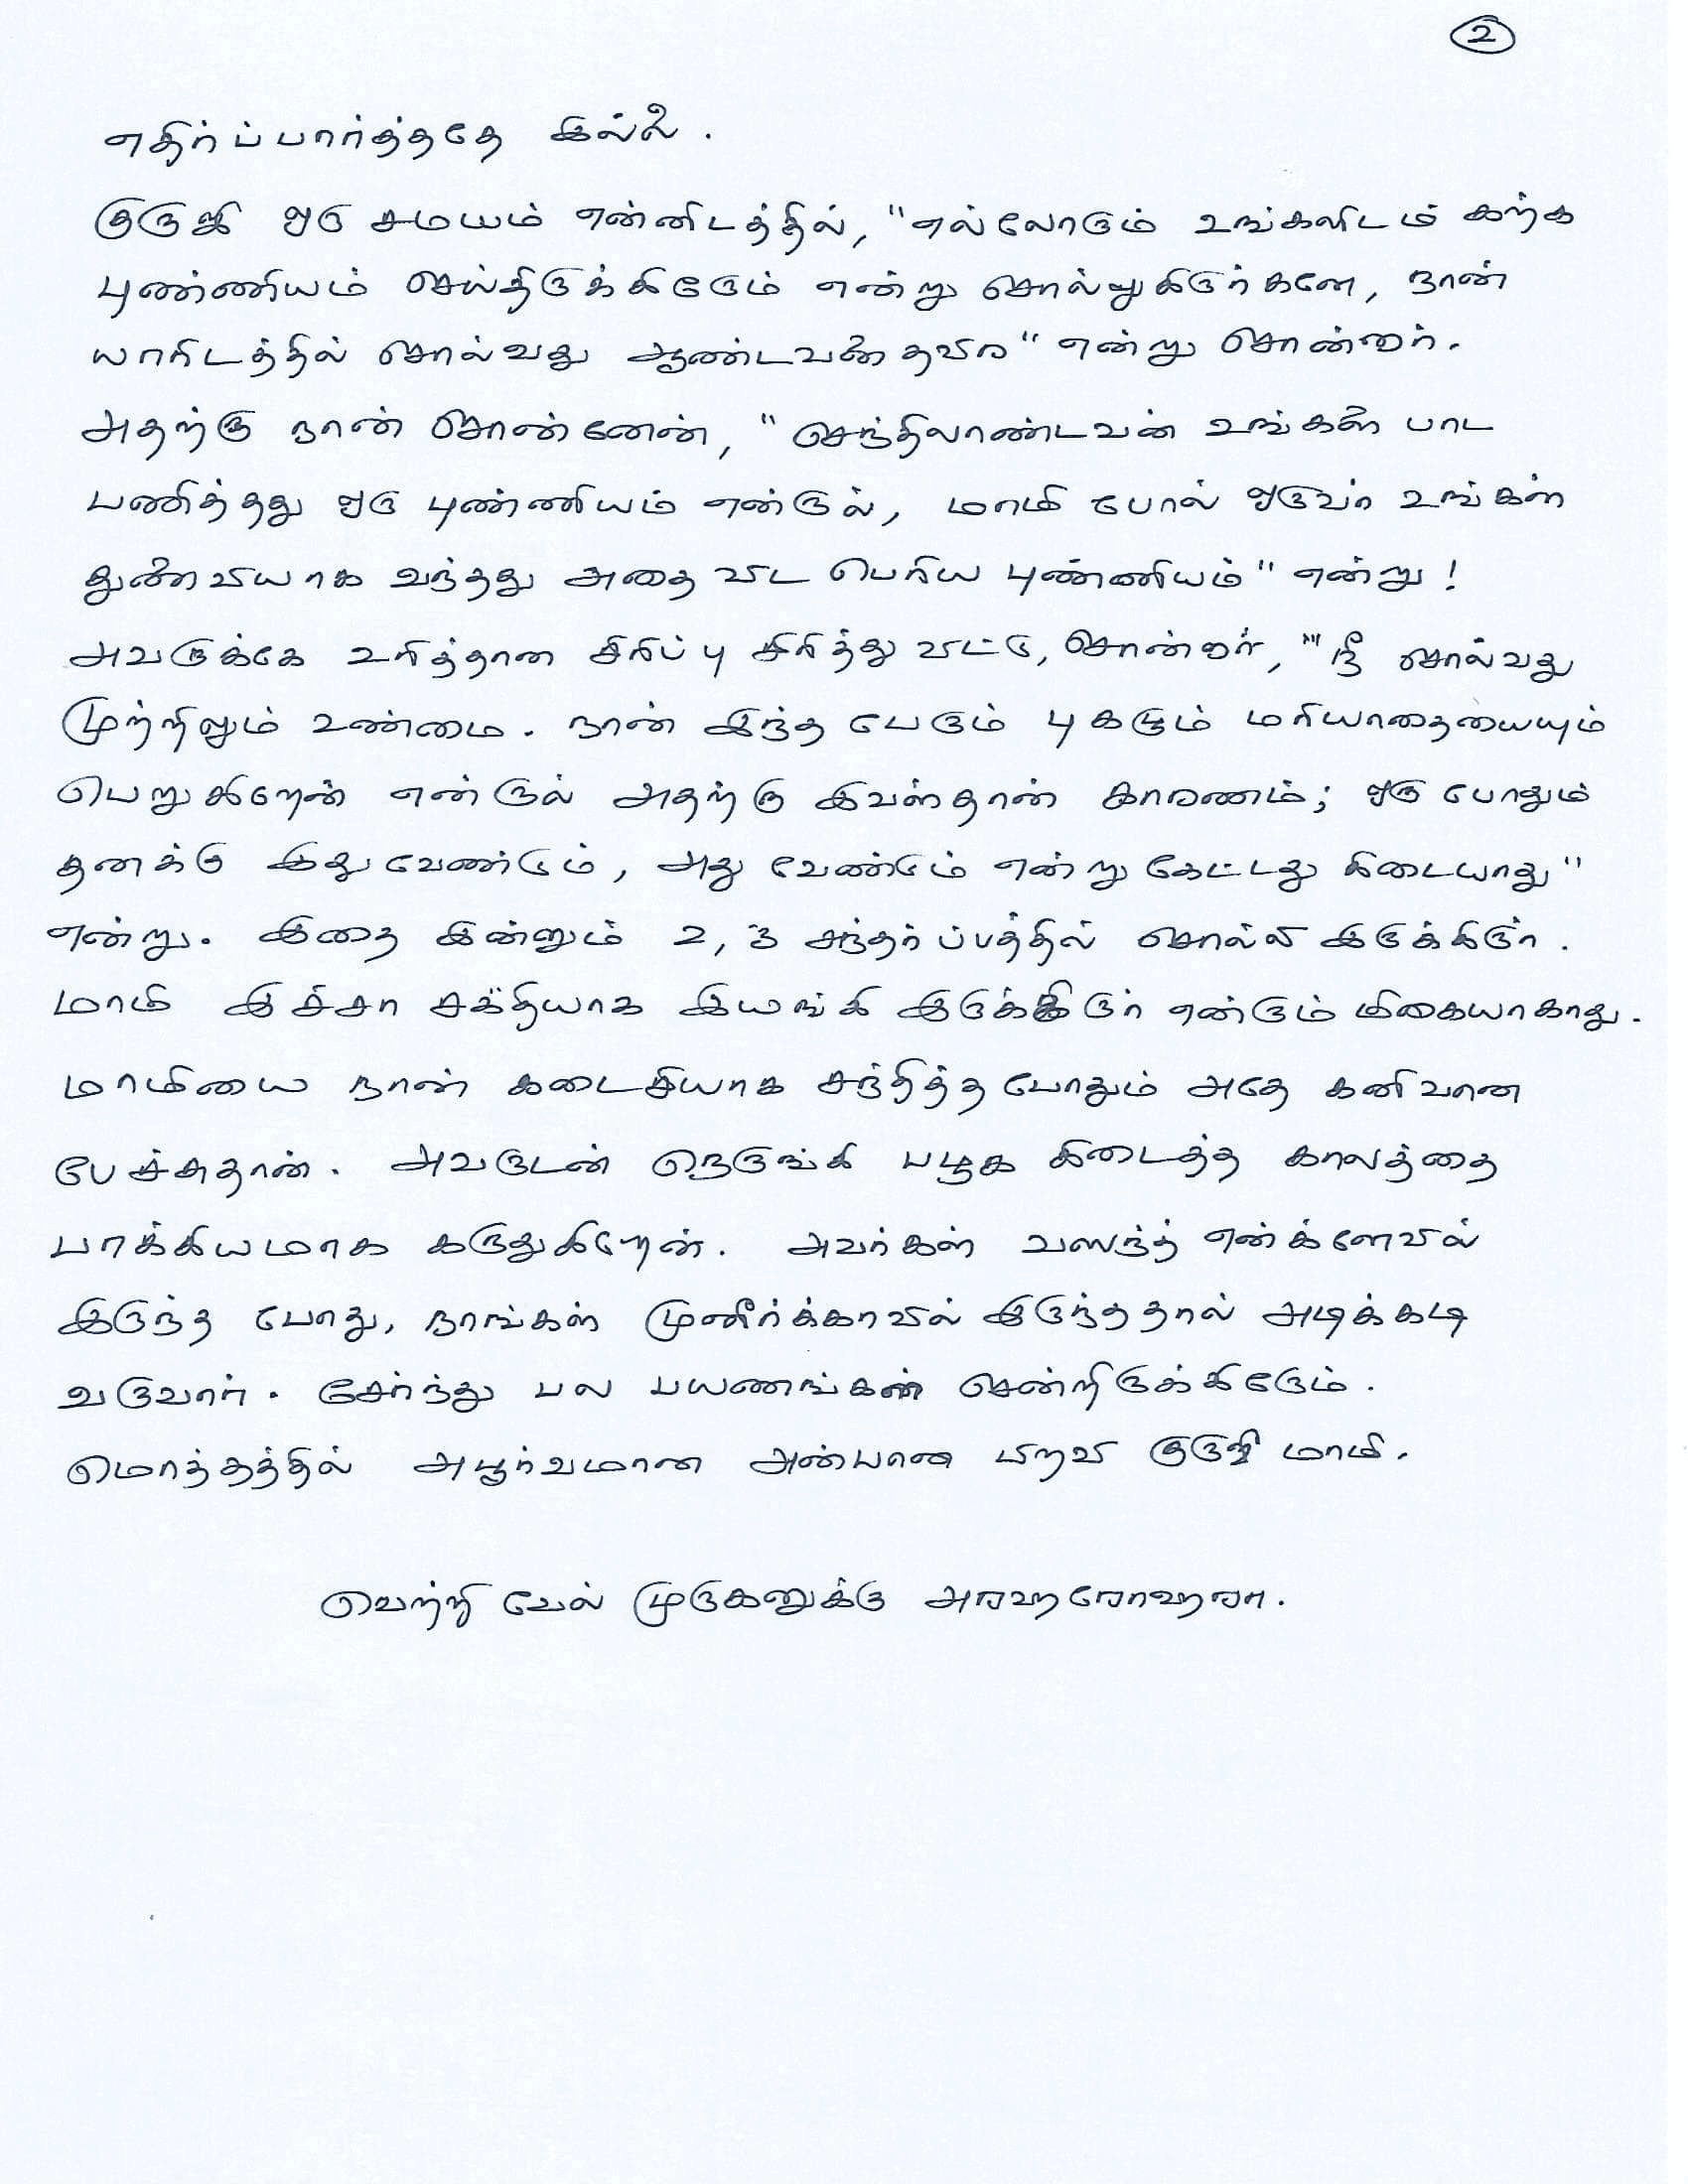 2
எதிர்ப்பார்த்ததே இல்லை.
குருஜி ஒரு சமயம் என்னிடத்தில், "எல்லோரும் உங்களிடம் கற்க
புண்ணியம் செய்திருக்கிறோம் என்று சொல்லுகிறார்களே, நான்
யாரிடத்தில் சொல்வது ஆண்டவனைதவிர" என்று சொன்னார்.
அதற்கு நான் சொன்னேன், "செந்திலாண்டவன் உங்களை பாட
பணித்தது ஒரு புண்ணியம் என்றால், மாமி போல் ஒருவர் உங்கள்
துணைவியாக வந்தது அதை விட பெரிய புண்ணியம்" என்று!
அவருக்கே உரித்தான சிரிப்பு சிரித்து விட்டு, சொன்னார், "நீ சொல்வது
முற்றிலும் உண்மை. நான் இந்த பேரும் புகழும் மரியாதையையும்
பெறுகிறேன் என்றால் அதற்கு இவள்தான் காரணம்; ஒரு போதும்
தனக்கு இது வேண்டும், அது வேண்டும் என்று கேட்டது கிடையாது"
என்று. இதை இன்னும் 2, 3 சந்தர்ப்பத்தில் சொல்லி இருக்கிறார்.
மாமி இச்சா சக்தியாக இயங்கி இருக்கிறார் என்றாலும் மிகையாகாது.
மாமியை நான் கடைசியாக சந்தித்த போதும் அதே கனிவான
பேச்சுதான். அவருடன் நெருங்கி பழக கிடைத்த காலத்தை
பாக்கியமாக கருதுகிறேன். அவர்கள் வஸந்த் என்க்ளேவில்
இருந்த போது, நாங்கள் முனீர்க்காவில் இருந்ததால் அடிக்கடி
வருவார். சேர்ந்து பல பயணங்கள் சென்றிருக்கிறோம்.
மொத்தத்தில் அபூர்வமான அன்பான பிறவி குருஜி மாமி.
வெற்றி வேல் முருகனுக்கு அரஹரோஹரா.